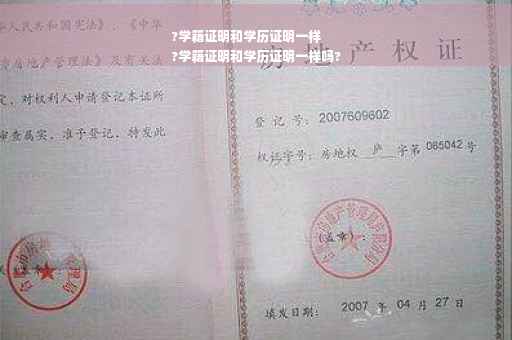 ?学藉证明和学历证明一样
?学藉证明和学历证明一样吗?
华人民共和国宪法》、《中华
房地产管理法》及有关法
定，对权利人申请登记本证所
审查属实，准予登记，特发此
房地产权证
登记号：2007609602
权证字号：房地权 庐 字第 065042 号
(盖章)：
填发日期： 2007 年 04 月 27 日